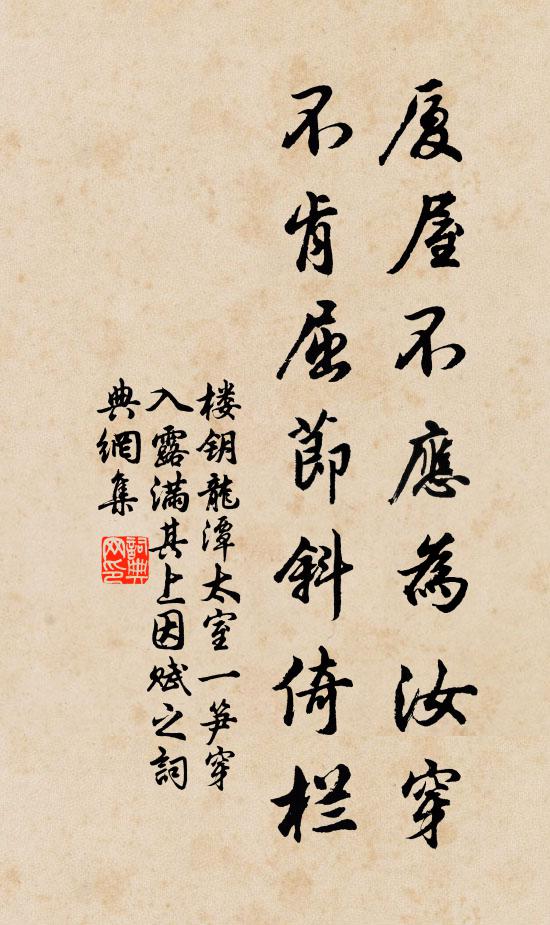 厦屋不應為汝穿
不肯屈節斜倚栏
楼钥龍潭太室一笋穿
入露满其上因赋之詞
典網集
詞典
网印